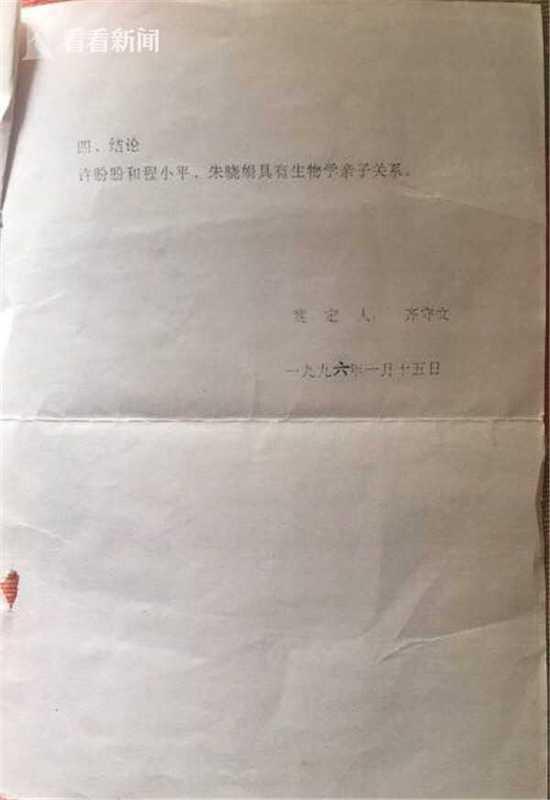 看看新闻
四、结论
许盼盼和程小平、朱晓娟具有生物学亲子关系。
鉴 定 人 齐守文
一九九六年一月十五日